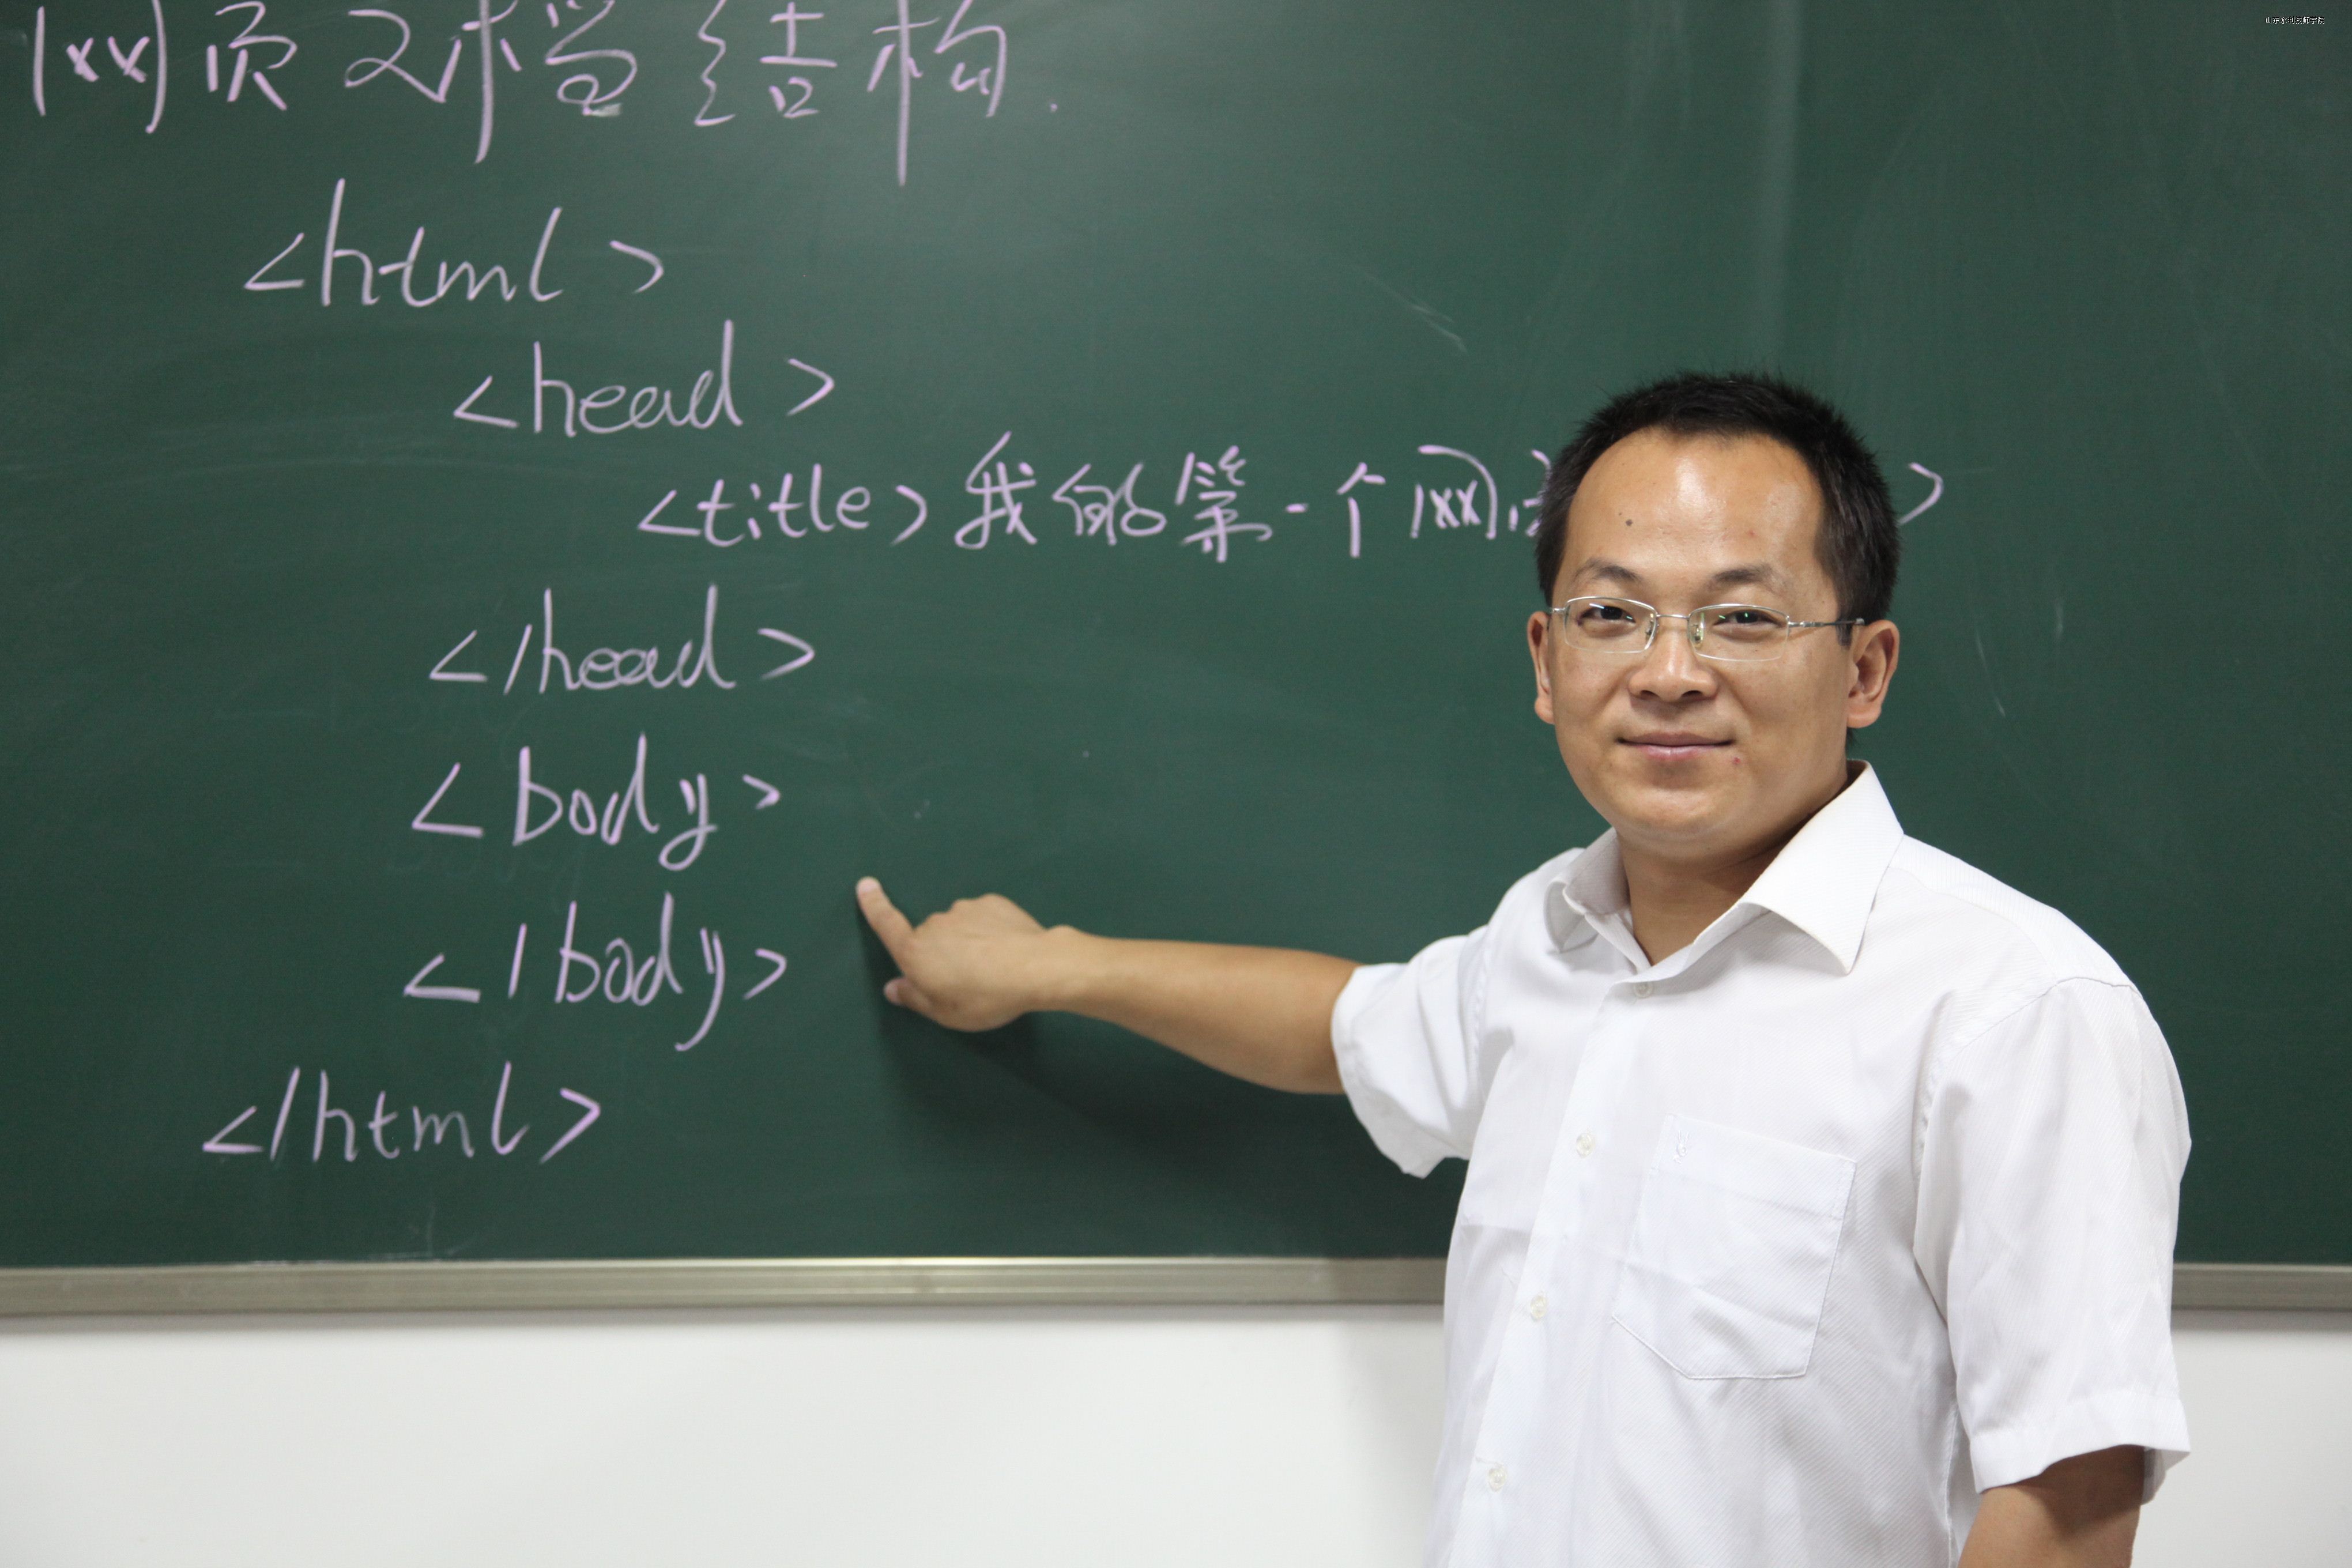 山东水利技师学院
网页文档结构.
<html>
<head>
<title>我的第一个网 >
</head>
<body>
</body>
</html>